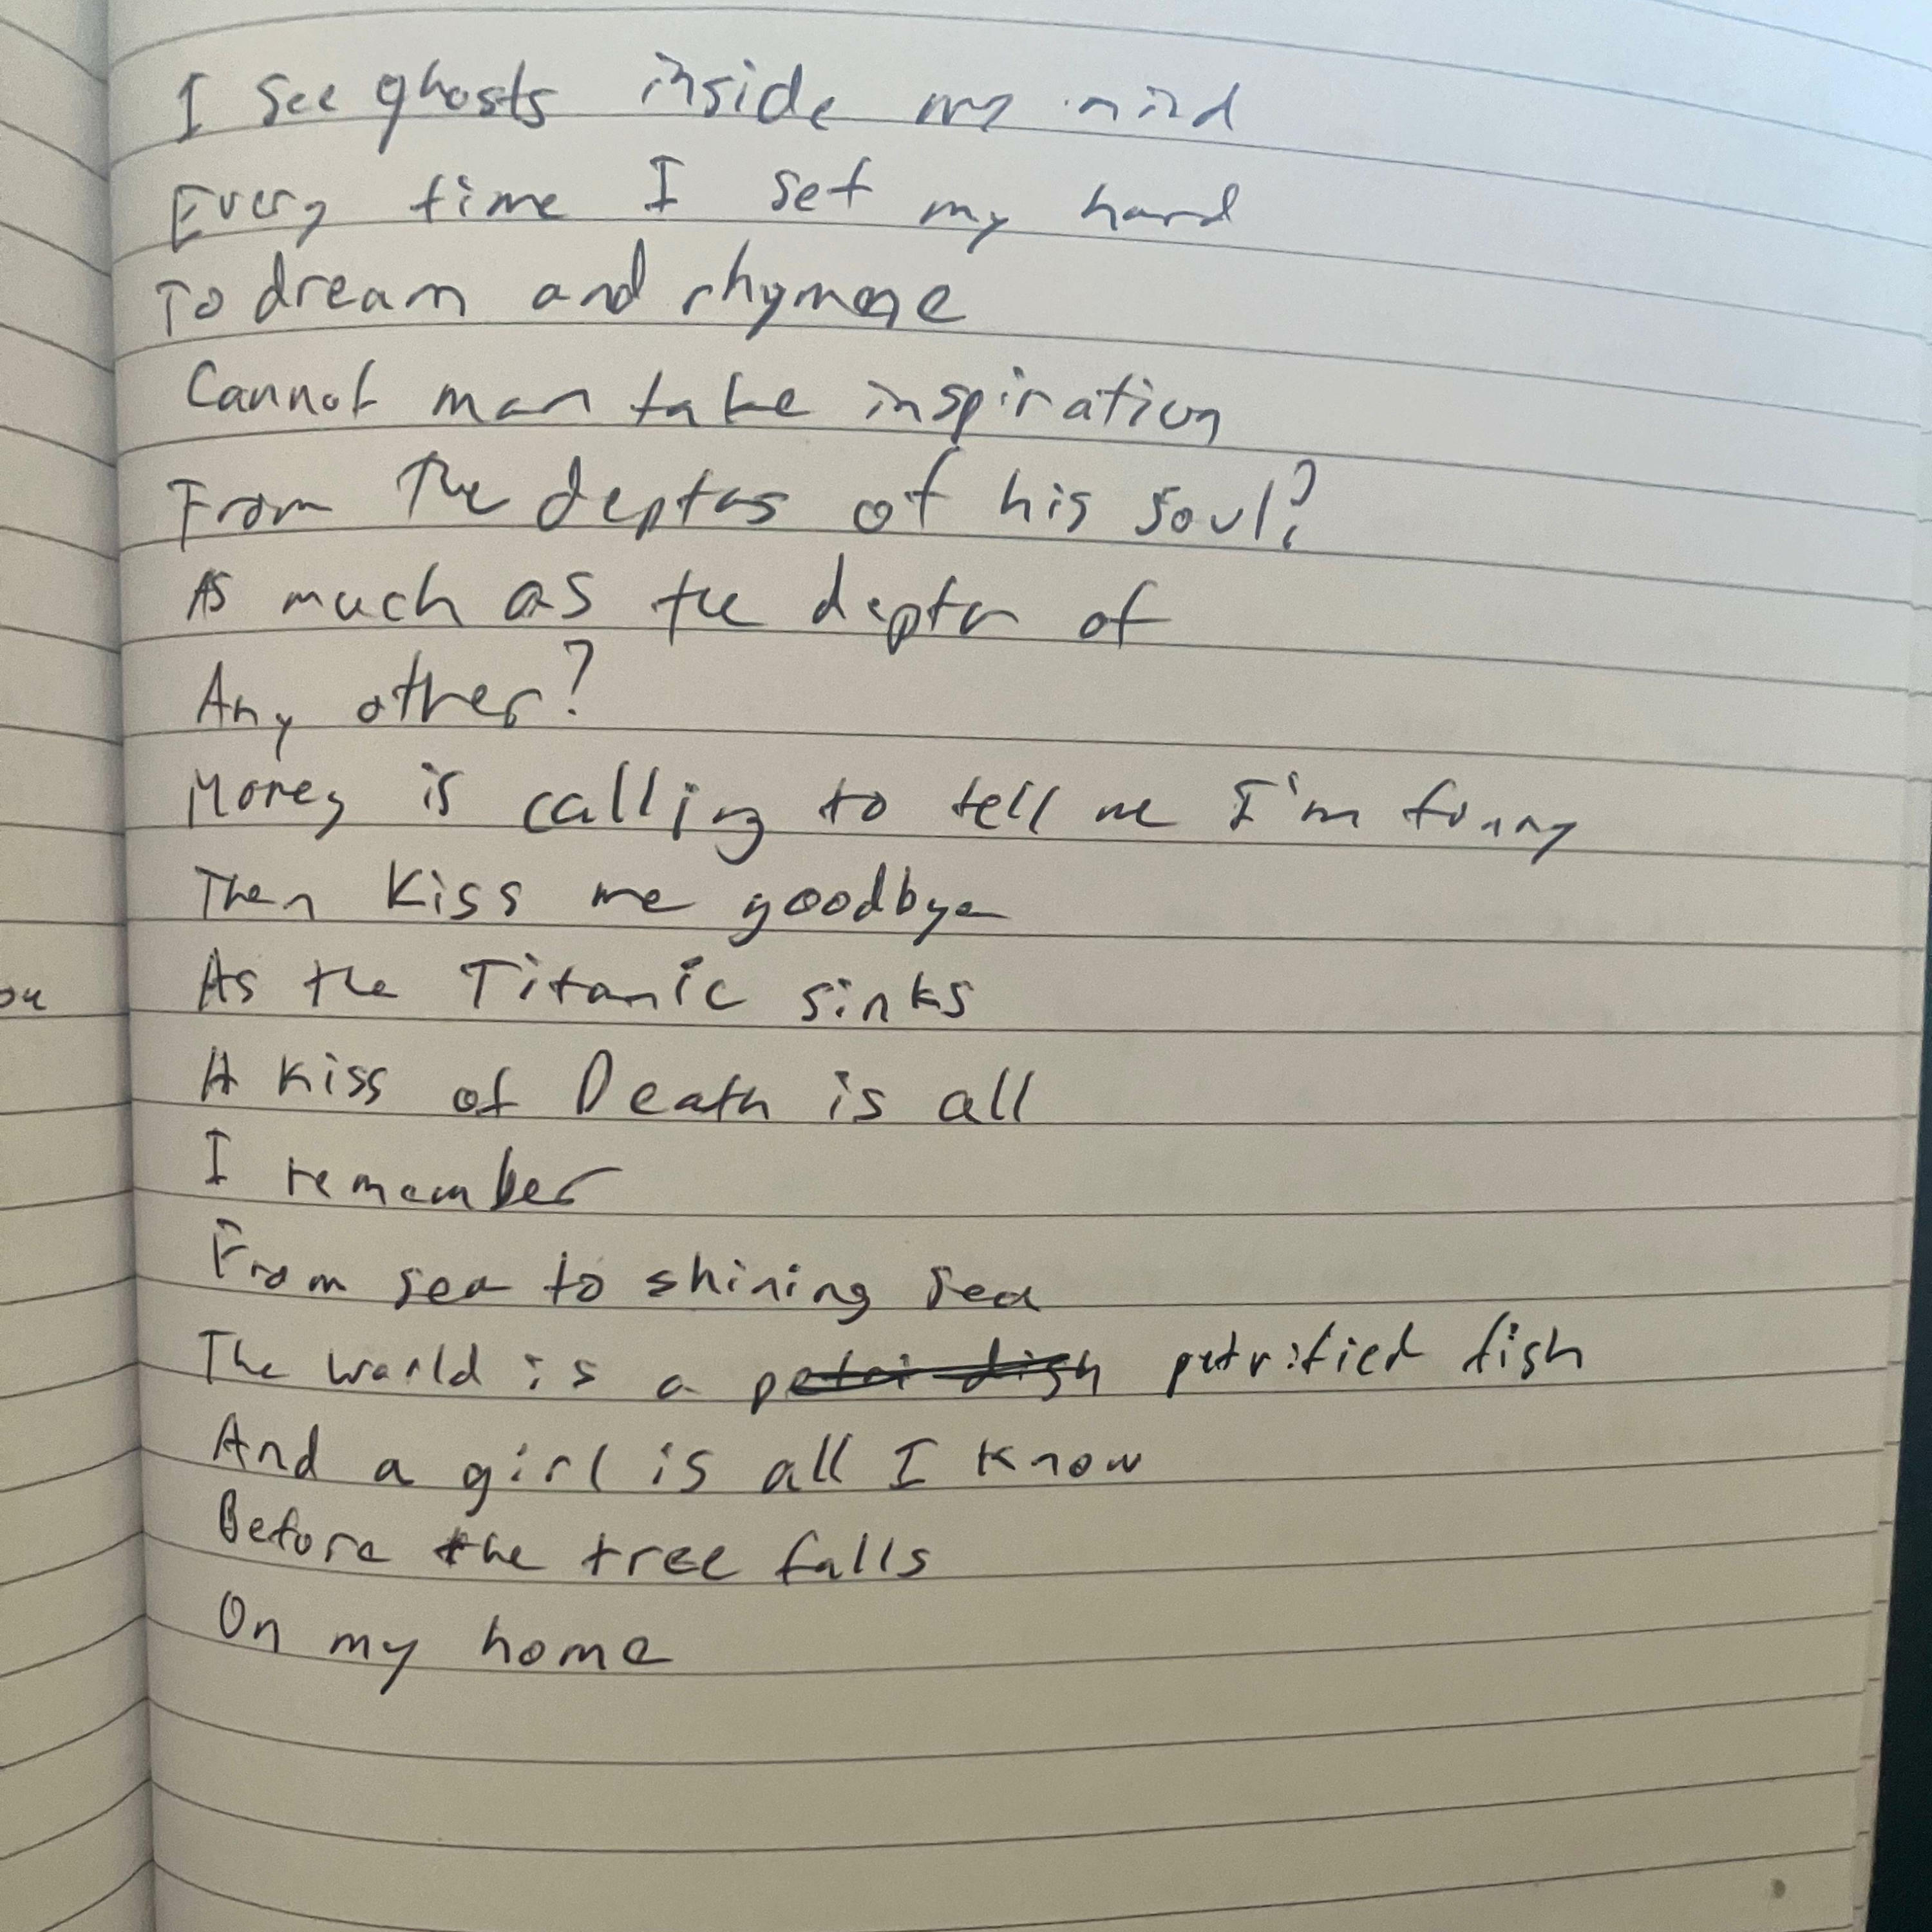 I see ghosts inside my mind
Every time I set my hand
To dream and rhymne
Cannot man take inspiration
From the depths of his soul?
As much as the depth of
Any other?
Money is calling to tell me I'm funny
Then kiss me goodbye
As the Titanic sinks
A kiss of Death is all
I remember
From sea to shining sea
The world is a petri dish petrified fish
And a girl is all I know
Before the tree falls
On my home